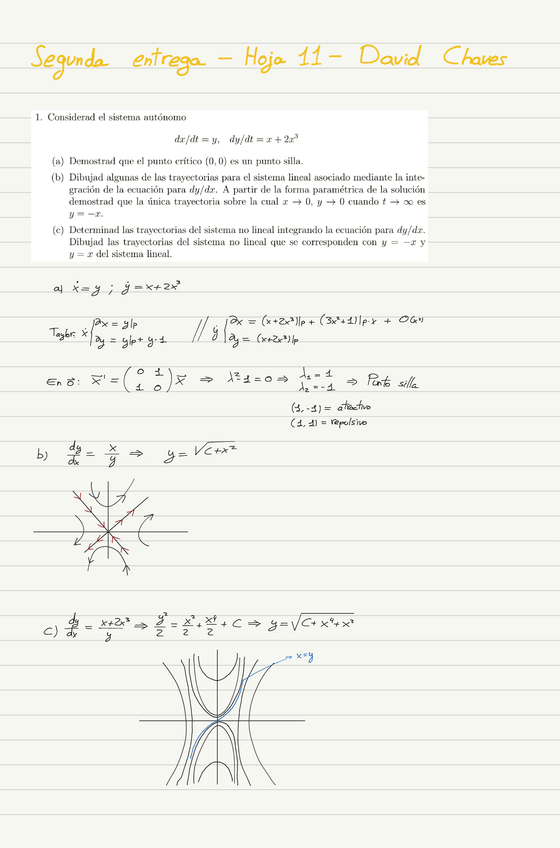 Segunda entrega - Hoja 11 - David Chaves
1. Considerad el sistema autónomo
dx/dt = y, dy/dt = x + 2x³
(a) Demostrad que el punto crítico (0, 0) es un punto silla.
(b) Dibujad algunas de las trayectorias para el sistema lineal asociado mediante la inte-
gración de la ecuación para dy/dx. A partir de la forma paramétrica de la solución
demostrad que la única trayectoria sobre la cual x → 0, y → 0 cuando t → ∞ es
y = −x.
(c) Determinad las trayectorias del sistema no lineal integrando la ecuación para dy/dx.
Dibujad las trayectorias del sistema no lineal que se corresponden con y = −x y
y = x del sistema lineal.
a) ẋ = y ; ẏ = x + 2x³
Taylor: ẋ { ∂x = y|p // ẏ { ∂x = (x+2x³)|p + (3x²+1)|p · x + O(x²)
∂y = y|p + y·1 ∂y = (x+2x³)|p
En 0⃗: x⃗' = (0 1; 1 0) x⃗ ⇒ λ²-1 = 0 ⇒ λ₁ = 1, λ₂ = -1 ⇒ Punto silla
(1,-1) = atractivo
(1,1) = repulsivo
b) dy/dx = x/y ⇒ y = √(C+x²)
c) dy/dx = (x+2x³)/y ⇒ y²/2 = x²/2 + x⁴/2 + C ⇒ y = √(C + x⁴ + x²)
x=y